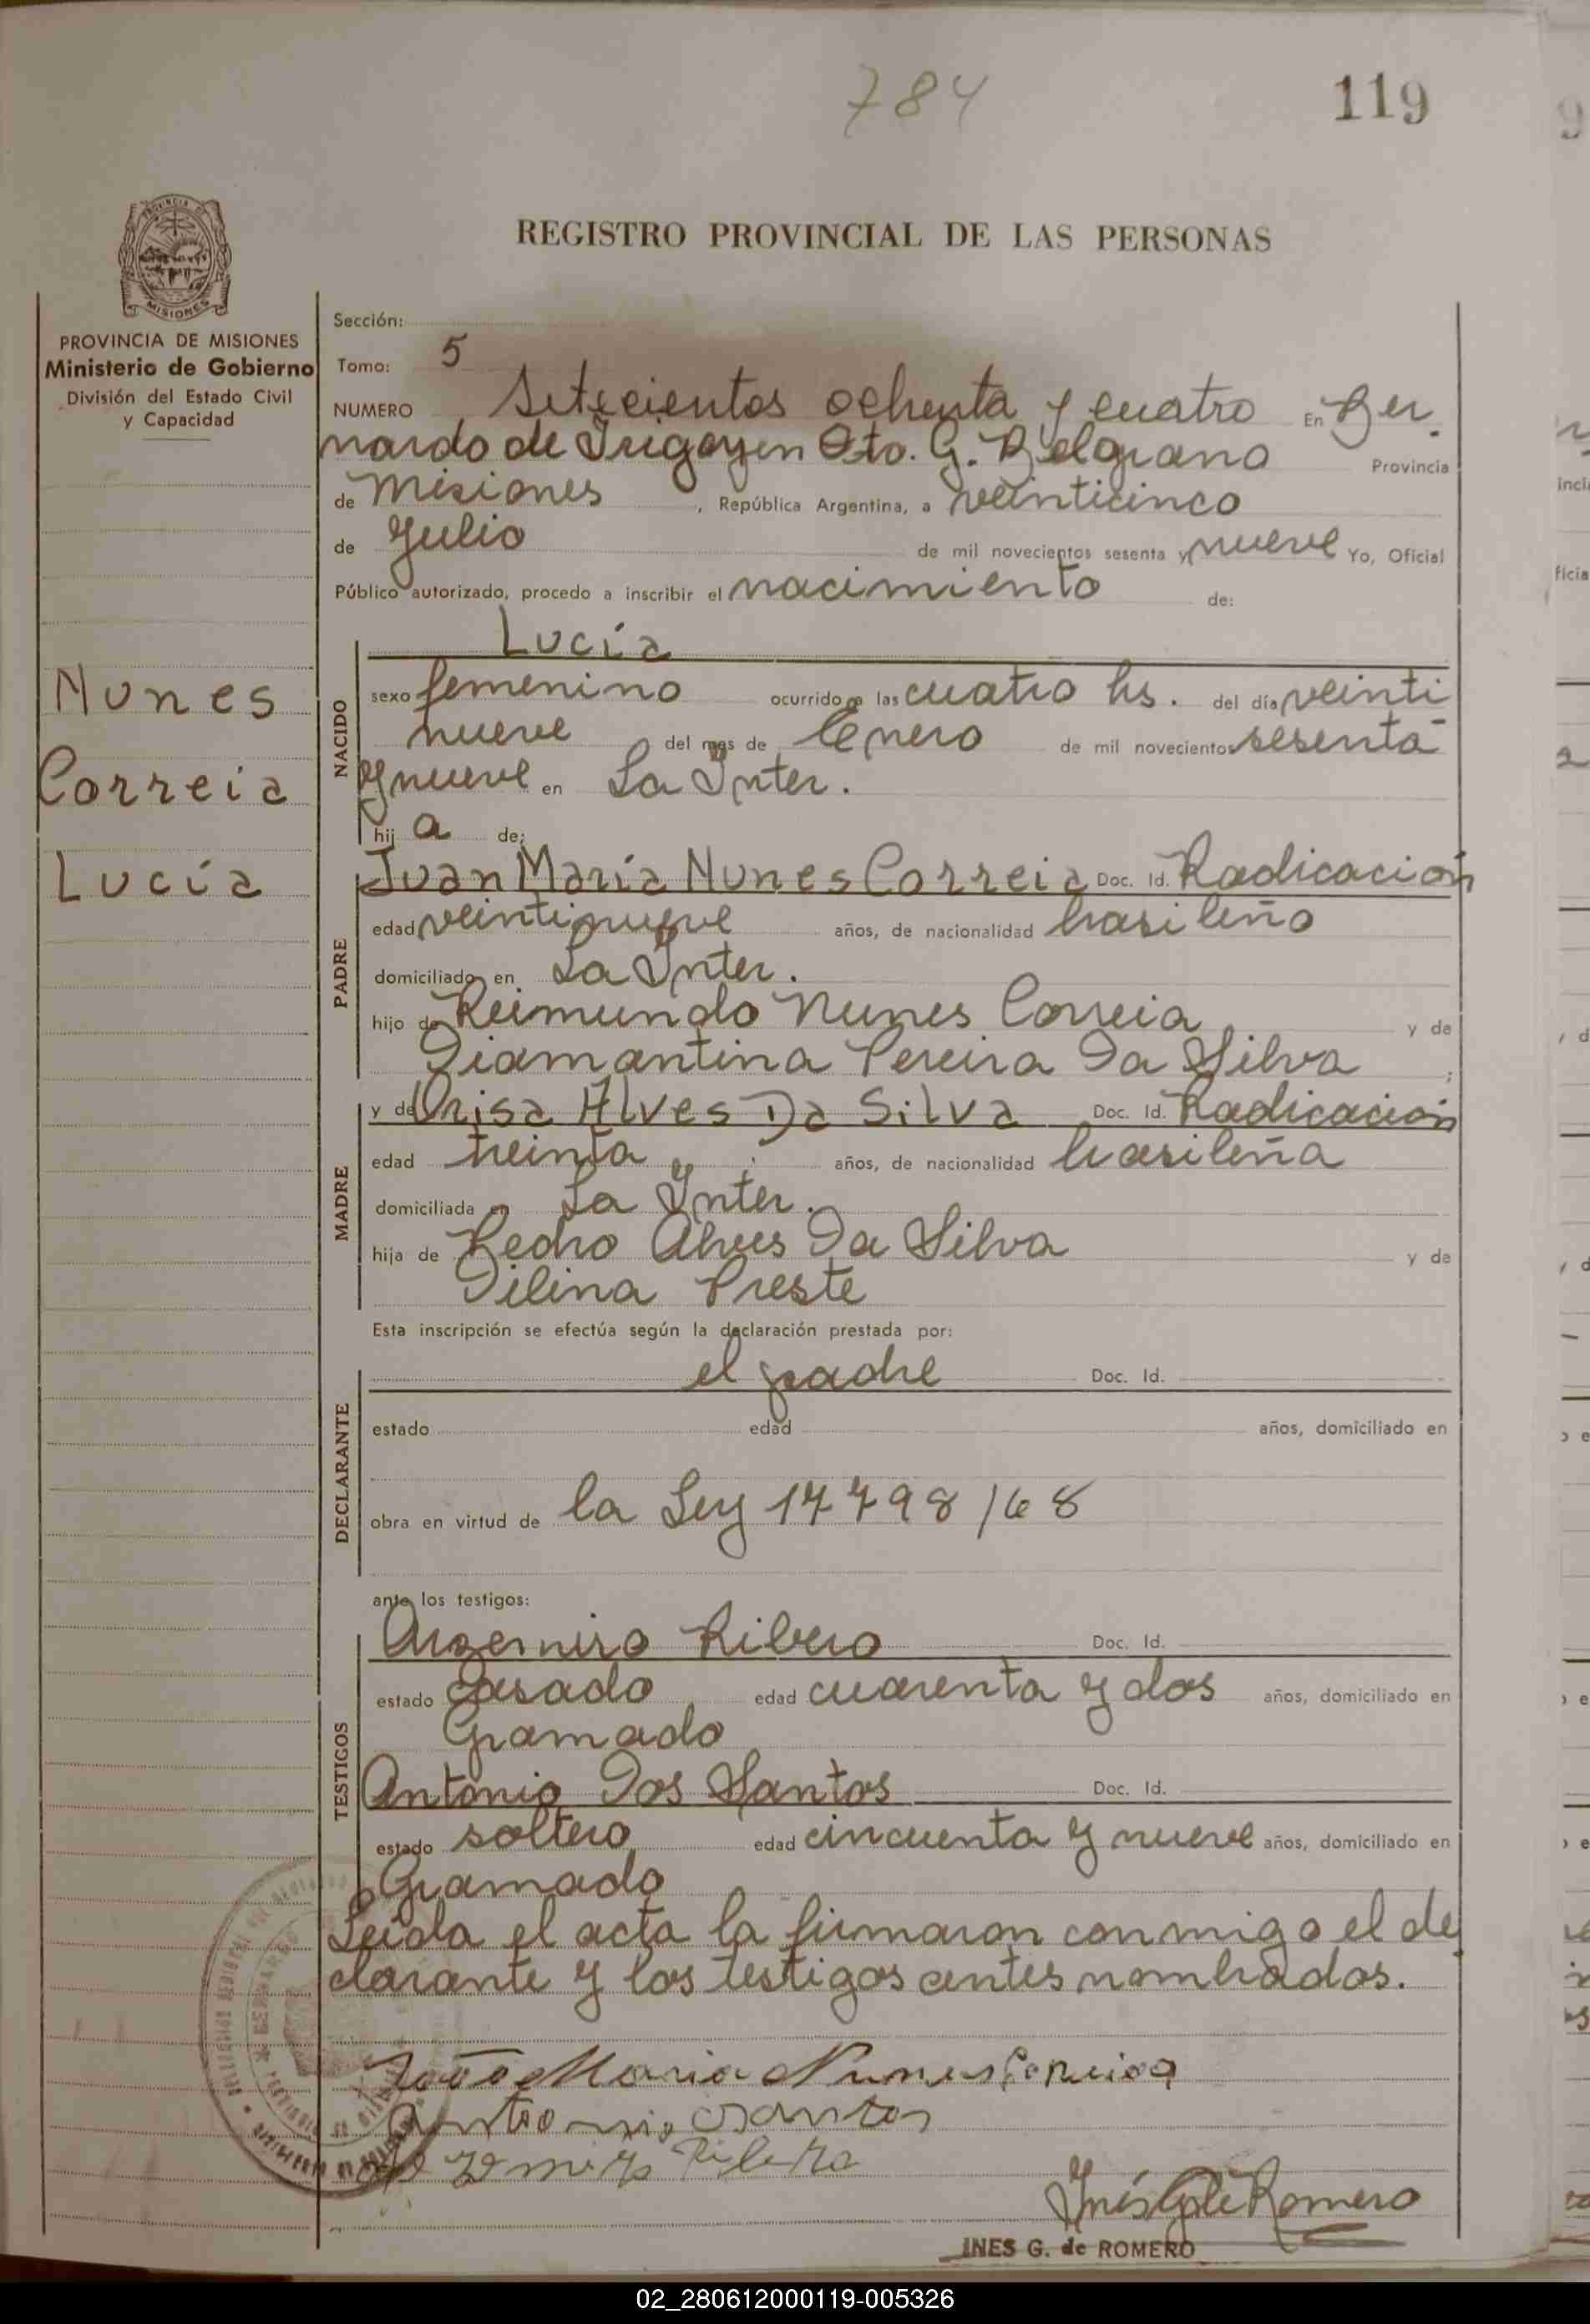 784
119
REGISTRO PROVINCIAL DE LAS PERSONAS
MISIONES
PROVINCIA DE MISIONES
Ministerio de Gobierno
División del Estado Civil
y Capacidad
Nunes
Correia
Lucía
Sección:
Tomo: 5
NUMERO Setecientos ochenta y cuatro En Ber
nardo de Irigoyen Dto. G. Belgrano Provincia
de Misiones, República Argentina, a veinticinco
de Julio de mil novecientos sesenta y nueve Yo, Oficial
Público autorizado, procedo a inscribir el nacimiento de:
Lucía
NACIDO
sexo femenino ocurrido a las cuatro hs. del día veinti
nueve del mes de Enero de mil novecientos sesenta
y nueve en La Inter.
hij a de:
PADRE
Juan María Nunes Correia Doc. Id. Radicación
edad veintinueve años, de nacionalidad brasileño
domiciliado en La Inter.
hijo de Reimundo Nunes Correia y de
Diamantina Pereira Da Silva ;
MADRE
y de Orisa Alves Da Silva Doc. Id. Radicación
edad treinta años, de nacionalidad brasileña
domiciliada en La Inter.
hija de Pedro Alves Da Silva y de
Dilina Preste
Esta inscripción se efectúa según la declaración prestada por:
DECLARANTE
el padre Doc. Id.
estado edad años, domiciliado en
obra en virtud de la Ley 17798/68
ante los testigos:
TESTIGOS
Argemiro Ribero Doc. Id.
estado casado edad cuarenta y dos años, domiciliado en
Gramado
Antonio Dos Santos Doc. Id.
estado soltero edad cincuenta y nueve años, domiciliado en
Gramado
Leída el acta la firmaron conmigo el de
clarante y los testigos antes nombrados.
João Maria Nunes Correia
Antonio Santos
Ribero
Inés G de Romero
INES G. de ROMERO
02_280612000119-005326